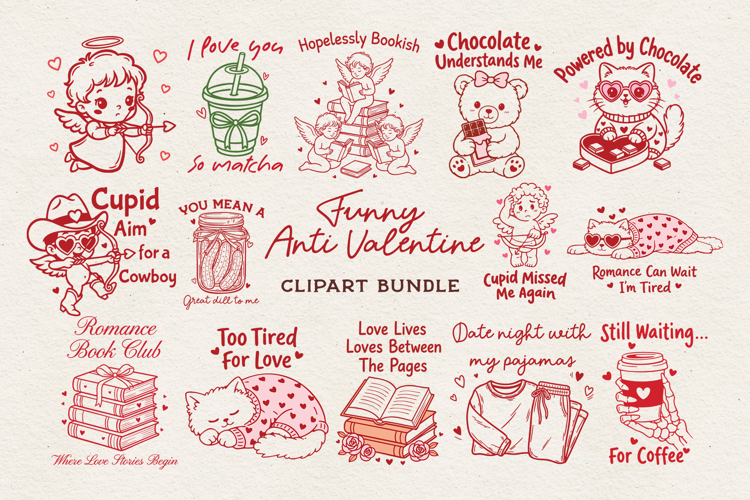 I love you
So matcha
Hopelessly Bookish
Chocolate
Understands Me
Powered by Chocolate
Cupid
Aim
for a
Cowboy
YOU MEAN A
Great dill to me
Funny
Anti Valentine
CLIPART BUNDLE
Cupid Missed
Me Again
Romance Can Wait
I'm Tired
Romance
Book Club
Where Love Stories Begin
Too Tired
For Love
Love Lives
Loves Between
The Pages
Date night with
my pajamas
Still Waiting...
For Coffee